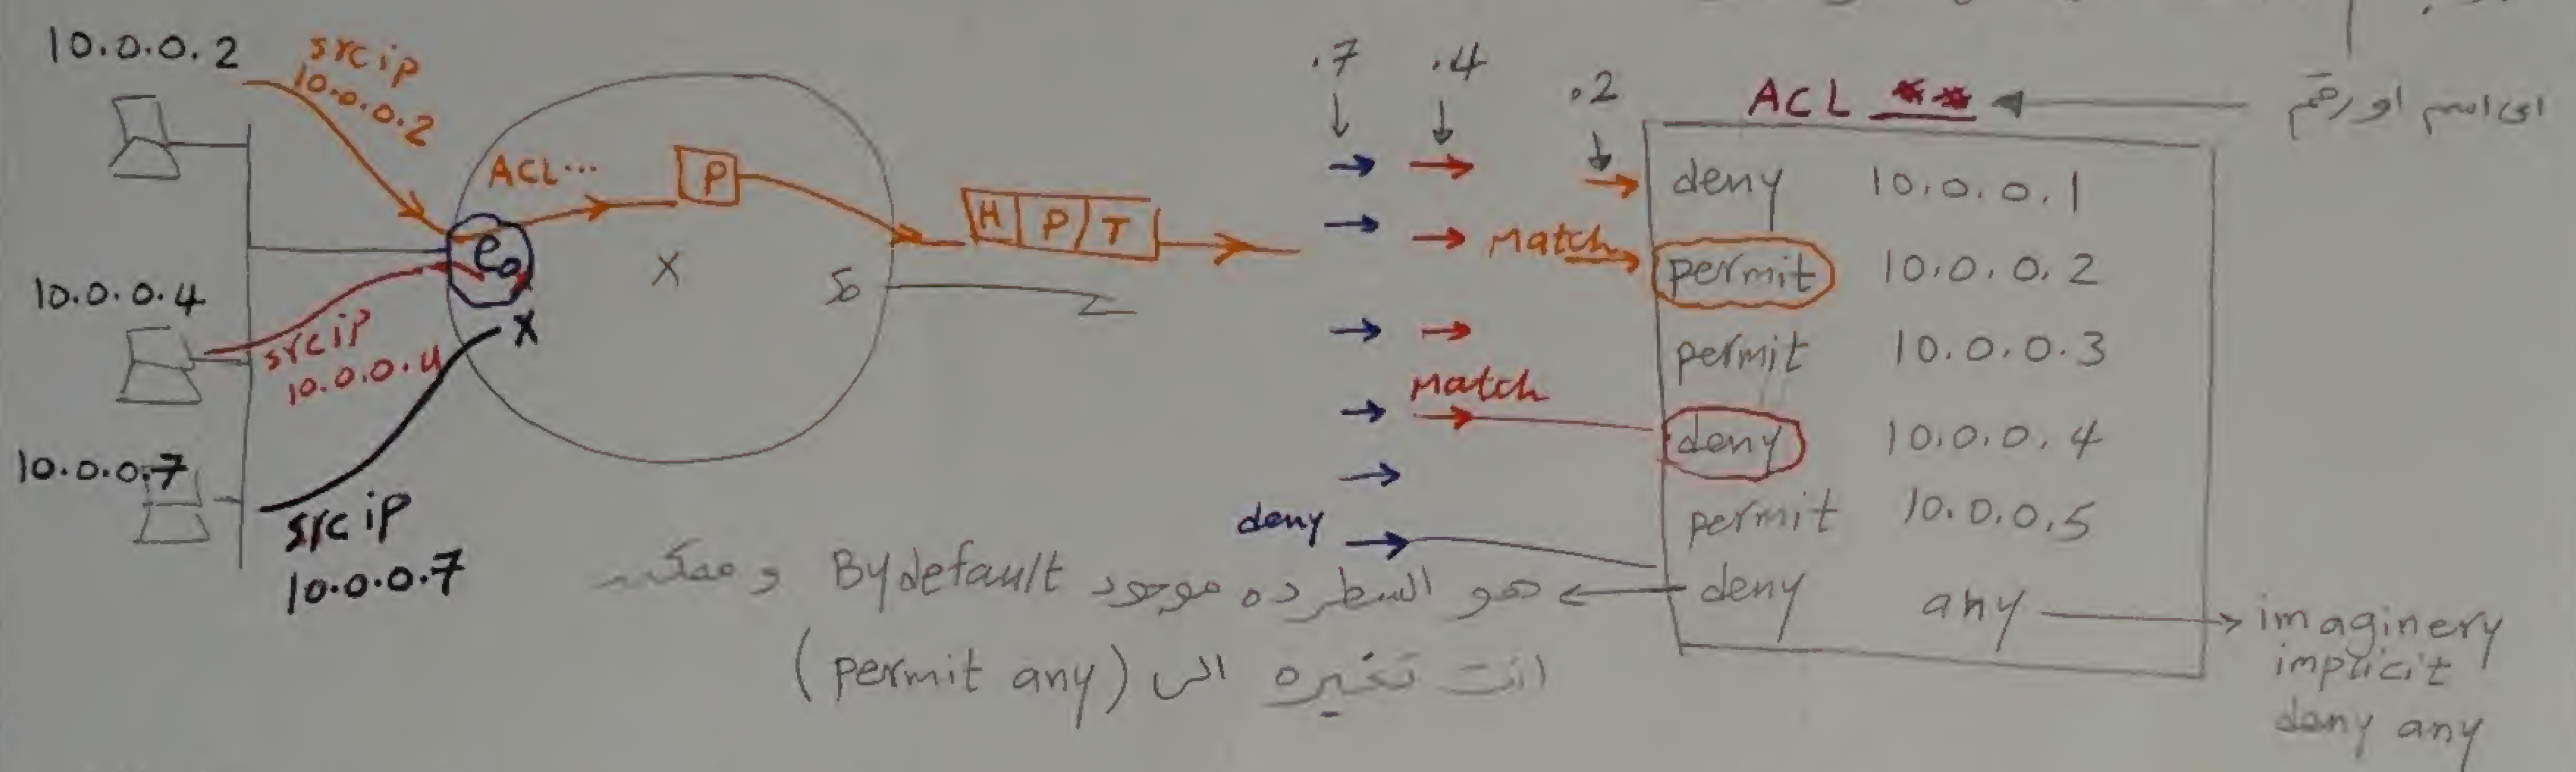 10.0.0.2
src ip
10.0.0.2
ACL...
P
H P T
e0
X
S0
10.0.0.4
src ip
10.0.0.4
X
10.0.0.7
src ip
10.0.0.7
.7
.4
.2
ACL **
اى اسم او رقم
deny 10.0.0.1
Match
permit 10.0.0.2
permit 10.0.0.3
Match
deny 10.0.0.4
permit 10.0.0.5
deny
deny any
imaginery
implicit
deny any
هو السطر ده موجود By default و ممكن
انت تغيره الى (permit any)